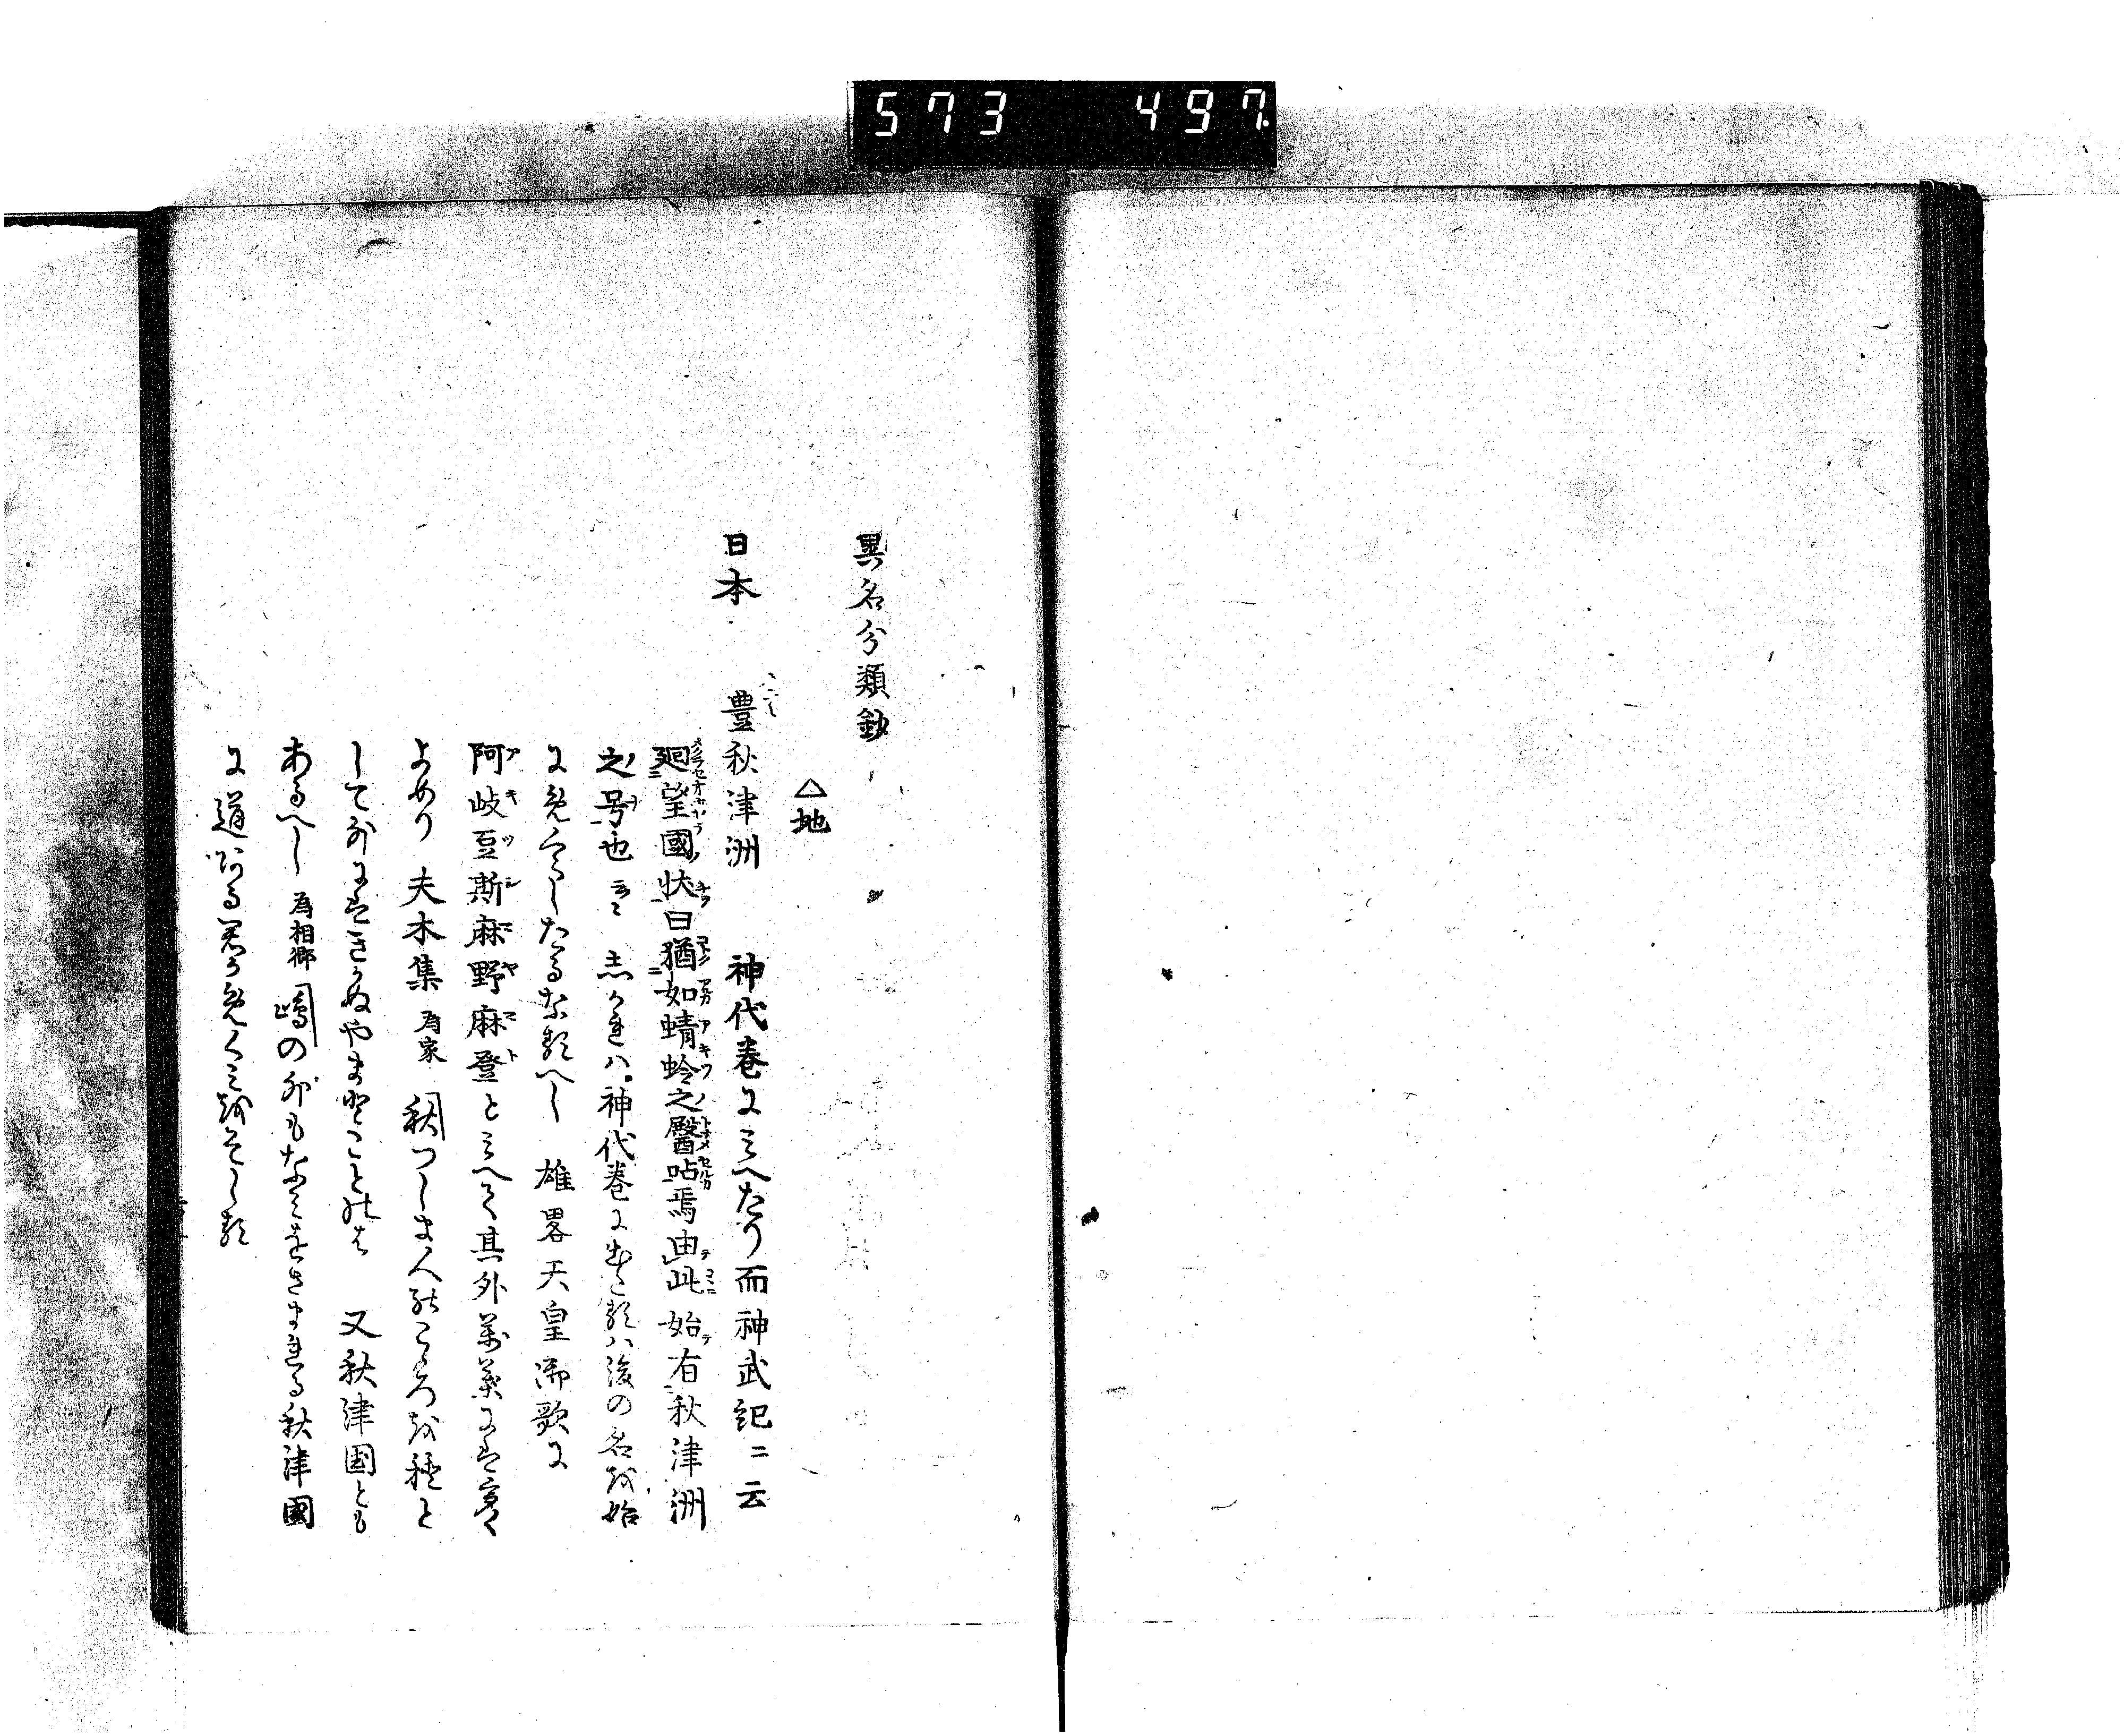 573 497
異名分類鈔
△地
日本 豊秋津洲 神代巻にみへたり而神武記ニ云
廻望國状曰猶如蜻蛉之臀呫焉由此始有秋津洲
之号也云々 しかれハ神代巻に出たるハ後の名を始
にめくらしたるなるへし 雄畧天皇御歌に
阿岐豆斯麻野麻登とみへて其外萬葉には多く
よめり 夫木集 為家 秋つしま人のこゝろを種と
してよにつきぬやまとことのは 又秋津國とも
あるへし 為相卿 嶋の外もなみをさまれる秋津國
に道ある君かめくみをそしる